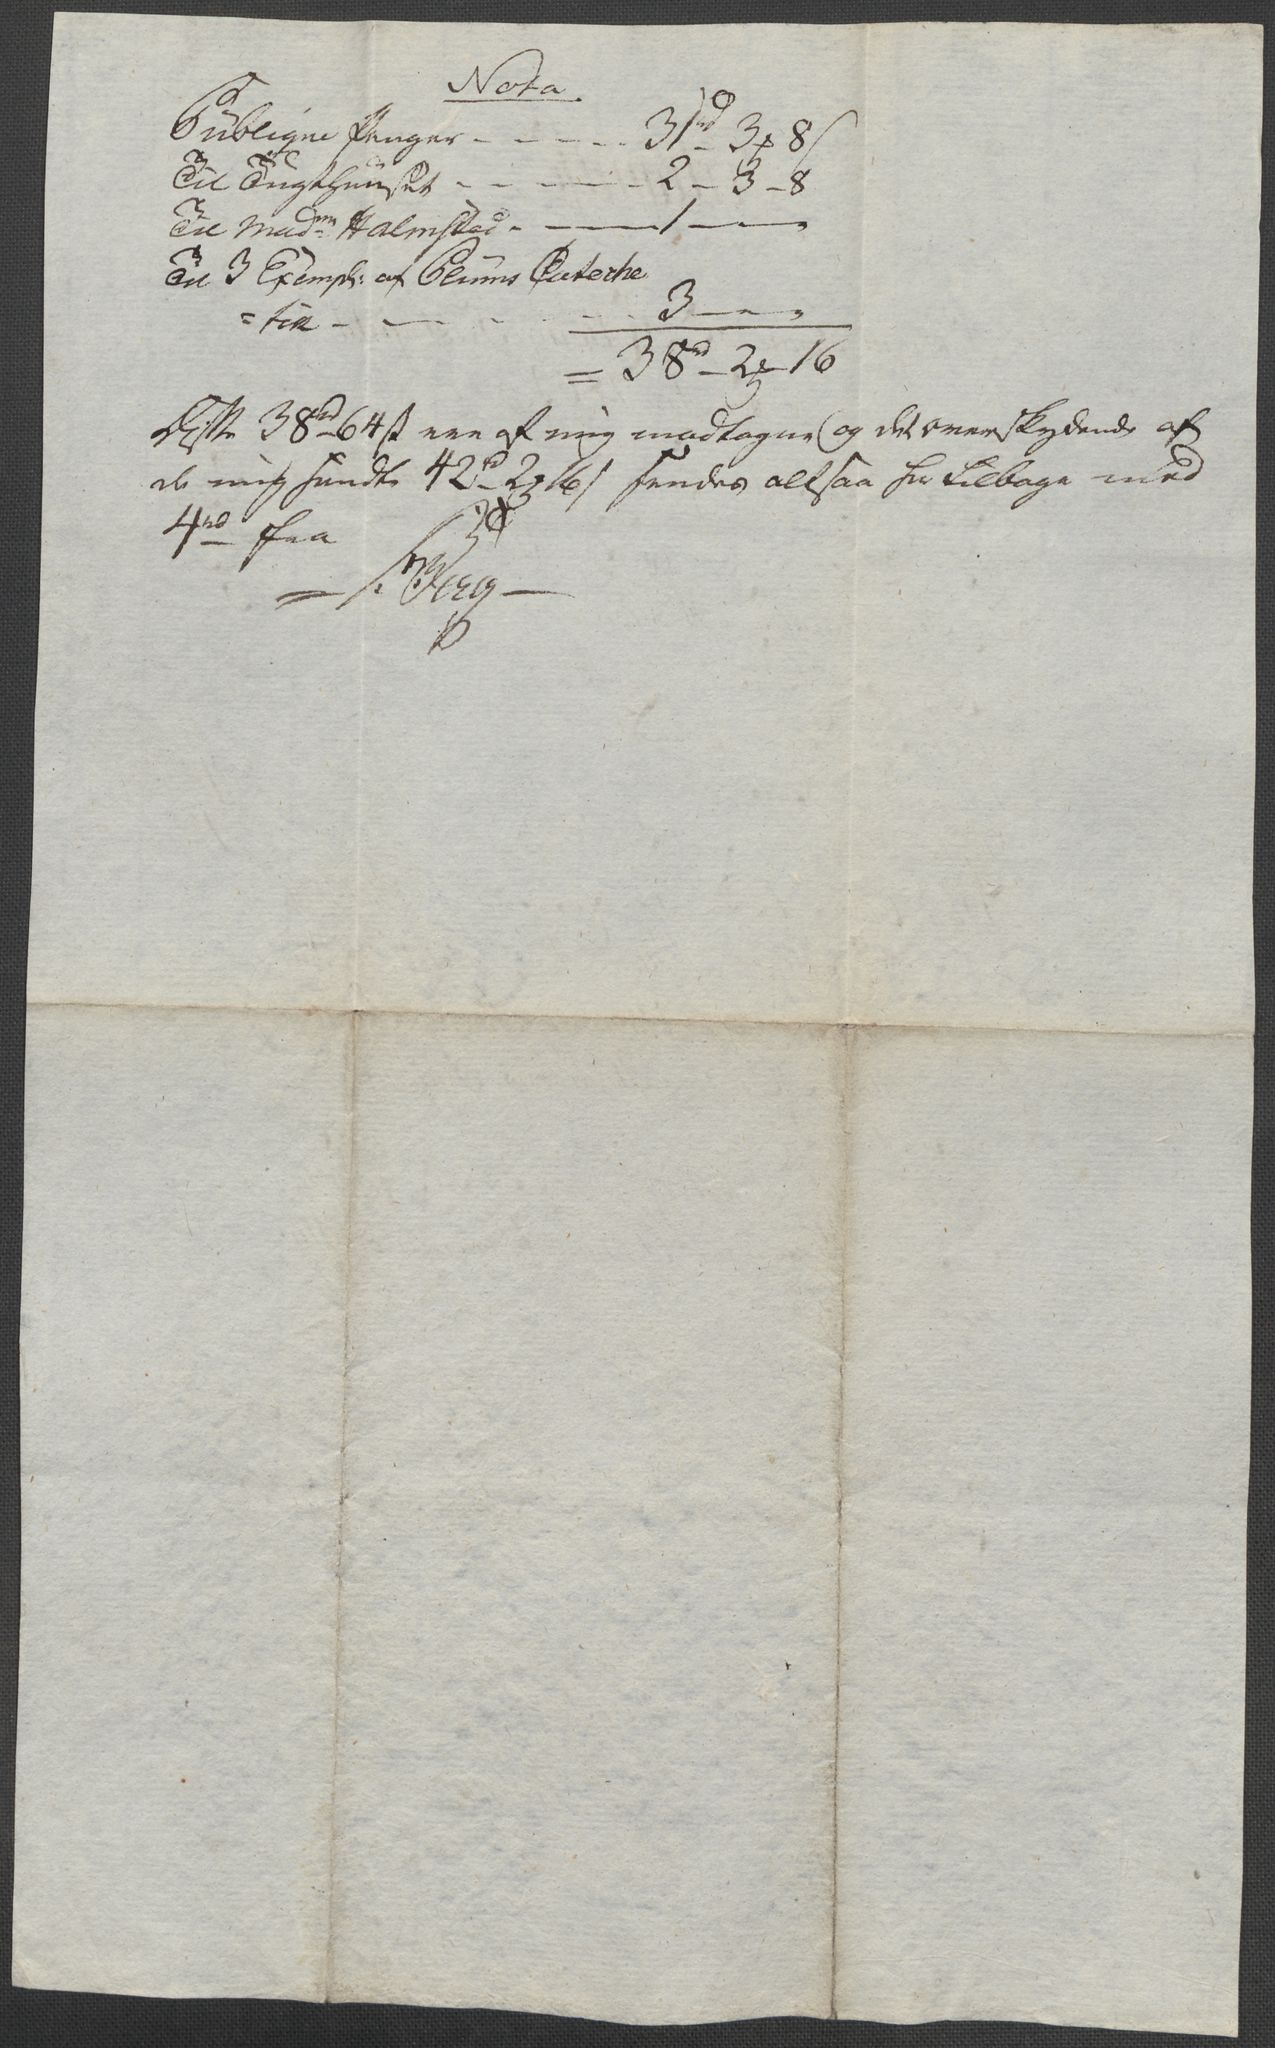 Nota
Publiqve Penger - - - - - 31 rd - 3 ß 8 s
Til Tugthuuset - - - - - 2 - 3 - 8
Til Mad:m Halmstad - - - 1 - - -
Til 3 Exempl: af Cateche
= - - - - - - 3 - - -
= 38 rd - 2 - 16
Disse 38 rd 64 s ere af mig modtagne og det overskydende af
de mig sendte 42 rd 2 16 s sendes altsaa her tilbage med
4 rd fra
Berg